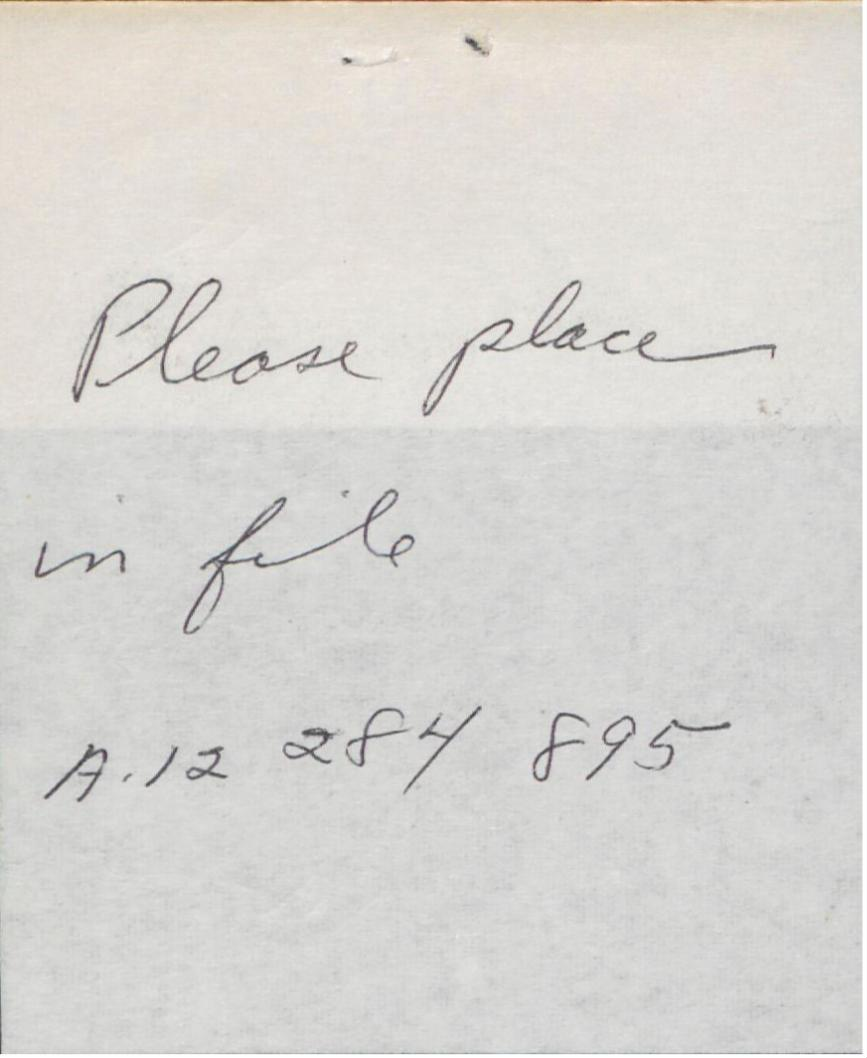 Please place
in file
A.12 284 895